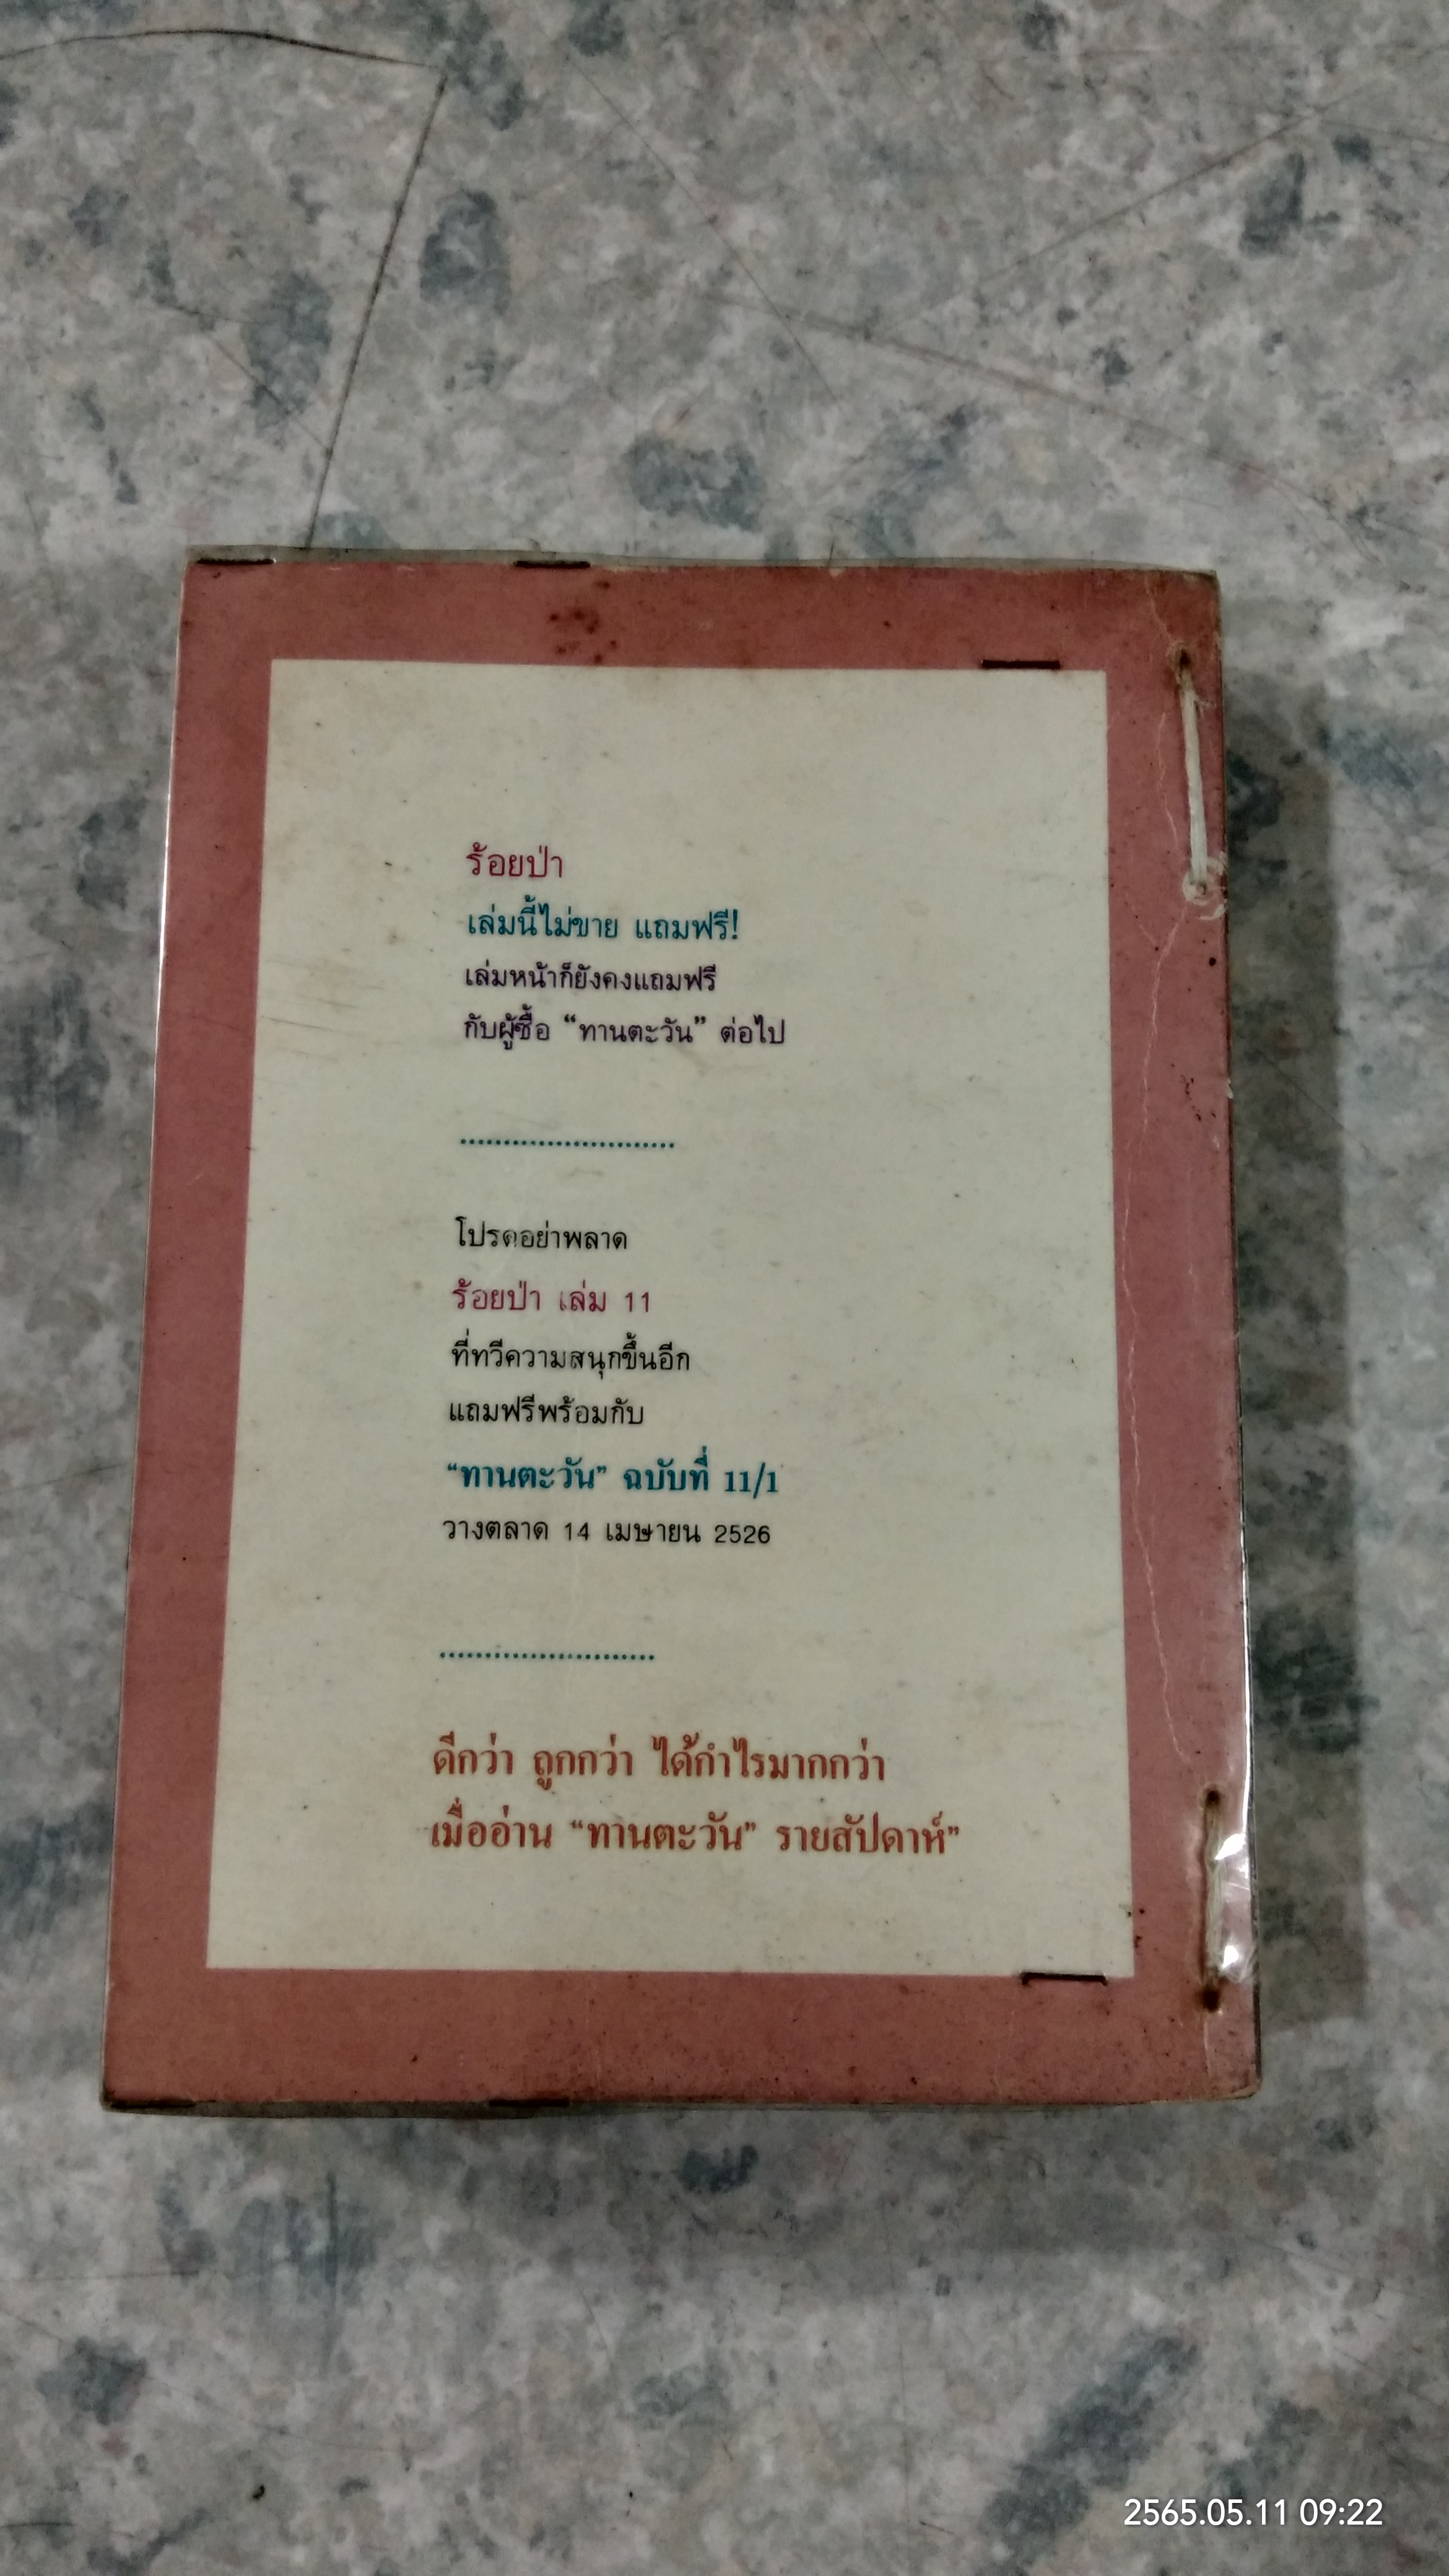 ร้อยป่า
เล่มนี้ไม่ขาย แถมฟรี!
เล่มหน้าก็ยังคงแถมฟรี
กับผู้ซื้อ “ทานตะวัน” ต่อไป
.........................
โปรดอย่าพลาด
ร้อยป่า เล่ม 11
ที่ทวีความสนุกขึ้นอีก
แถมฟรีพร้อมกับ
“ทานตะวัน” ฉบับที่ 11/1
วางตลาด 14 เมษายน 2526
.........................
ดีกว่า ถูกกว่า ได้กำไรมากกว่า
เมื่ออ่าน “ทานตะวัน” รายสัปดาห์”
2565.05.11 09:22